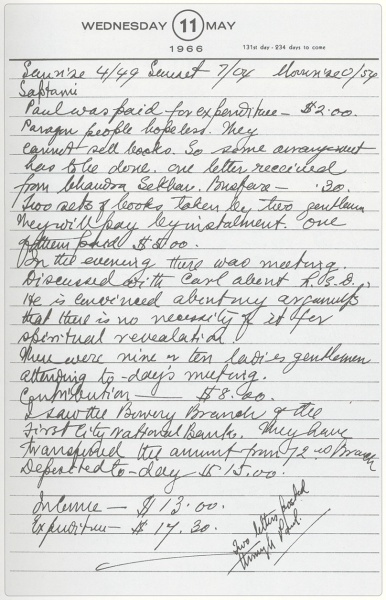 WEDNESDAY 11 MAY
1966
131st day - 234 days to come
Sunrise 4/49 Sunset 7/04 Moonrise 0/54
Saptami
Paul was paid for expenditure - $2.00.
Paragon people hopeless. They
cannot sell books. So some arrangement
has to be done. One letter received
from Chandra Sekhar. Busfare - .30.
Two sets of books taken by two gentlemen
They will pay by instalment. One
of them paid $5.00.
In the evening there was meeting.
Discussed with Carl about L.S.D.
He is convinced about my arguments
that there is no necessity of it for
spiritual revealation.
There were nine or ten ladies gentlemen
attending to-day's meeting.
Contribution - $8.00.
I saw the Bowery Branch of the
First City National Bank. They have
transferred the amount from 72 Branch
Deposited to-day $15.00.
Income - $13.00.
Expenditure - $17.30.
Two letters posted
through Paul.